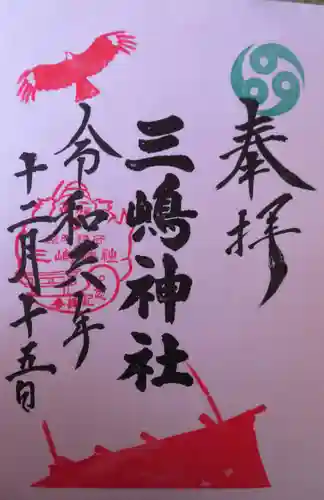 奉拝
三嶋神社
令和六年
十二月十五日
三嶋神社